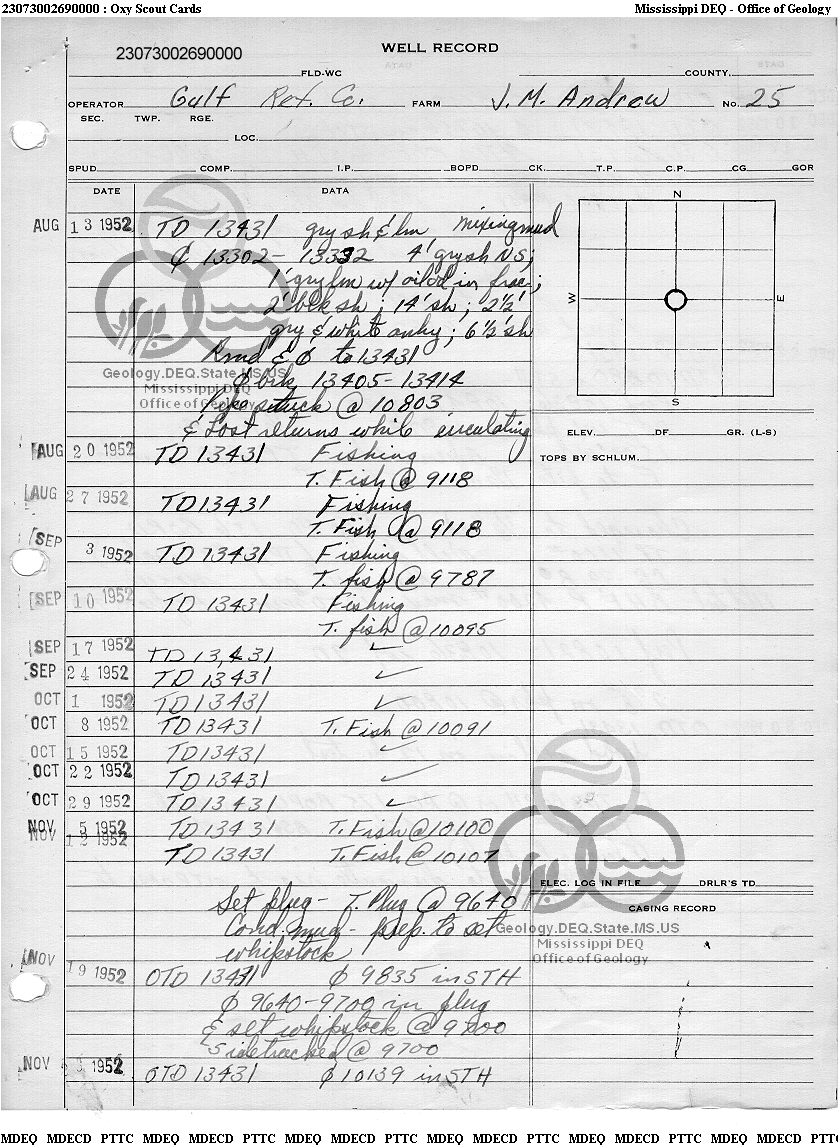 23073002690000 : Oxy Scout Cards Mississippi DEQ - Office of Geology
23073002690000
WELL RECORD
FLD-WC COUNTY
OPERATOR Gulf Ref. Co. FARM J. M. Andrew No. 25
SEC. TWP. RGE.
LOC.
SPUD COMP. I.P. BOPD CK. T.P. C.P. CG GOR
DATE DATA
AUG 13 1952 TD 13431 gry sh & lm mixing mud
₵ 13302 - 13332 4' gry sh NS;
1' gry lm w/ oil od in frac;
2' blk sh; 14' sh; 2½'
gry & white anhy; 6½ sh
Rmd & ₵ to 13431
₵ brk 13405-13414
Pipe stuck @ 10803
& Lost returns while circulating
AUG 20 1952 TD 13431 Fishing
T. Fish @ 9118
AUG 27 1952 TD 13431 Fishing
T. Fish @ 9118
SEP 3 1952 TD 13431 Fishing
T. fish @ 9787
SEP 10 1952 TD 13431 Fishing
T. fish @ 10095
SEP 17 1952 TD 13,431 ✓
SEP 24 1952 TD 13431 ✓
OCT 1 1952 TD 13431 ✓
OCT 8 1952 TD 13431 T. Fish @ 10091
OCT 15 1952 TD 13431 ✓
OCT 22 1952 TD 13431 ✓
OCT 29 1952 TD 13431 ✓
NOV 5 1952 TD 13431 T. Fish @ 10100
NOV 12 1952 TD 13431 T. Fish @ 10107
Set plug - T. Plug @ 9640
Cond. mud - prep. to set
whipstock
NOV 19 1952 OTD 13431 ₵ 9835 in STH
₵ 9640-9700 in plug
& set whipstock @ 9700
Sidetracked @ 9700
NOV 1952 OTD 13431 ₵ 10139 in STH
N
W E
S
ELEV. DF. GR. (L-S)
TOPS BY SCHLUM.
ELEC. LOG IN FILE DRLR'S TD
CASING RECORD
Geology.DEQ.State.MS.US
Mississippi DEQ
Office of Geology
Geology.DEQ.State.MS.US
Mississippi DEQ
Office of Geology
MDEQ MDECD PTTC MDEQ MDECD PTTC MDEQ MDECD PTTC MDEQ MDECD PTTC MDEQ MDECD PTTC MDEQ MDECD PTTC